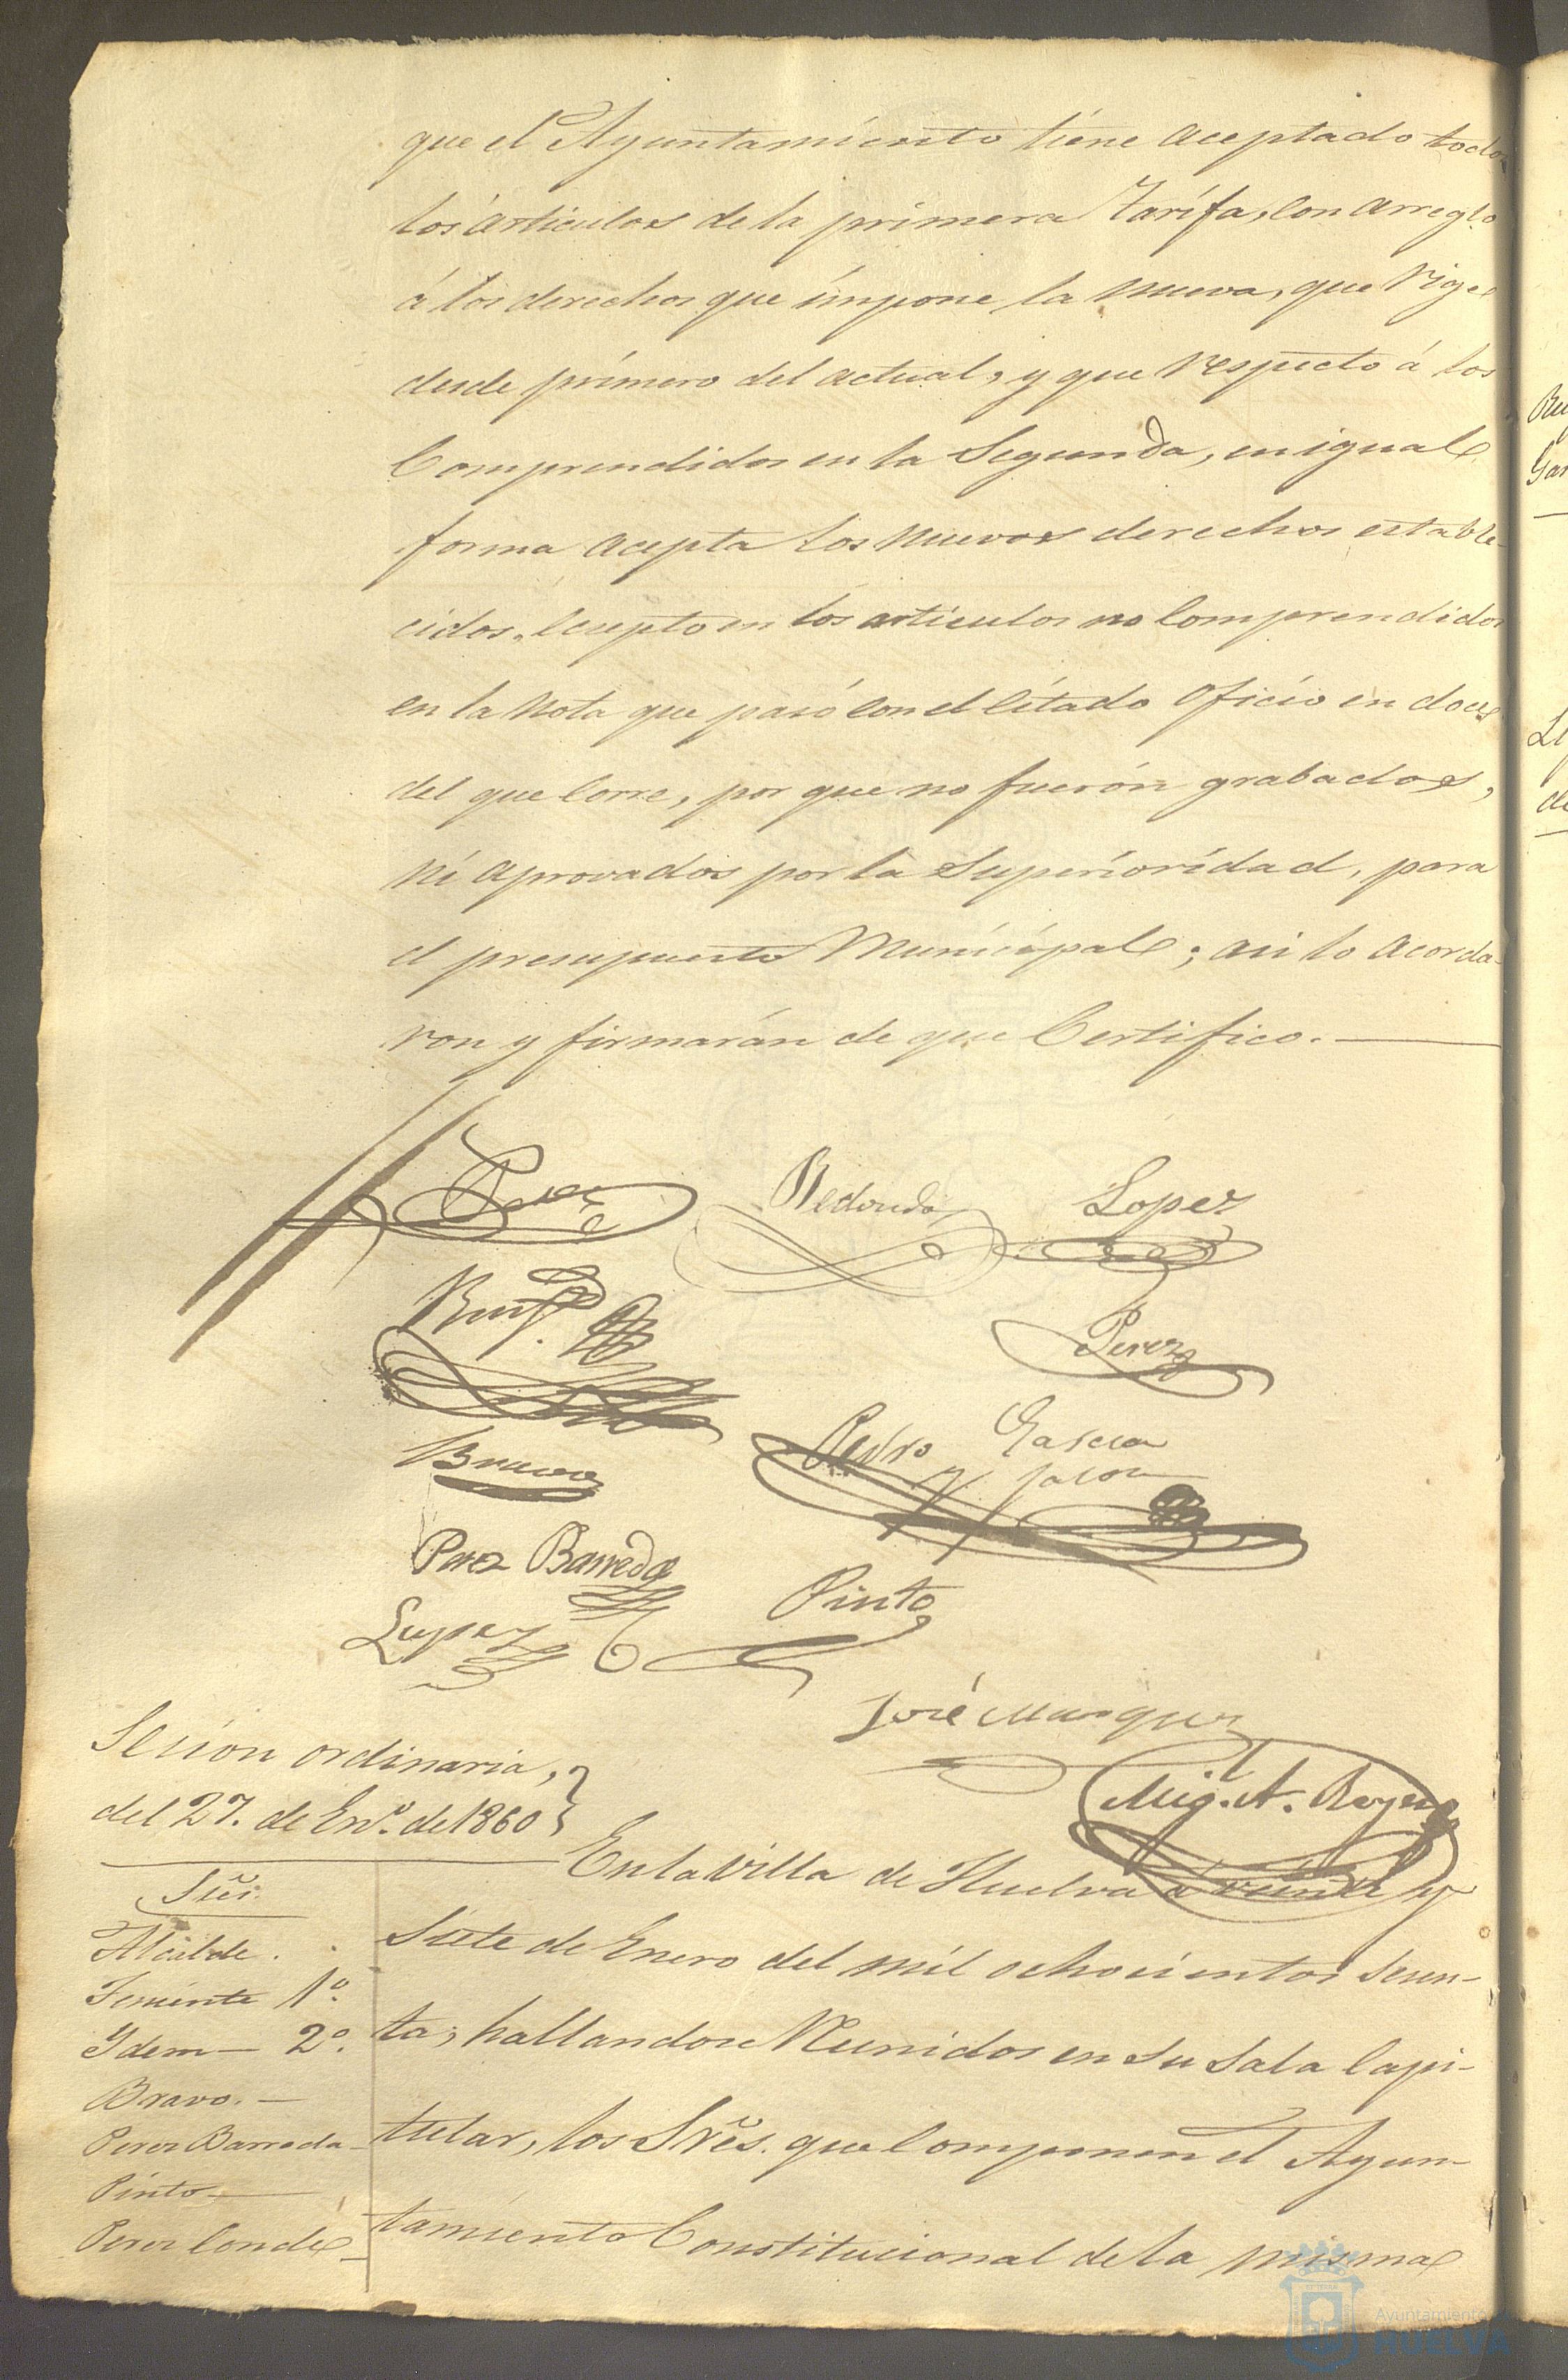 que el Ayuntamiento tiene aceptado todos
los articulos de la primera Tarifa, con arreglo
á los derechos que impone la nueva, que rige
desde primero del actual, y que respecto á los
Comprendidos en la Segunda, en igual
forma acepta los nuevos derechos estable-
cidos, Cecepto en los articulos no Comprendidos
en la nota que pasó con el Citado oficio en doce
del que Corre, por que no fuerón grabados,
ni aprovados por la Superioridad, para
el presupuesto Municipal; asi lo acorda-
ron y firmarán de que Certifico.
Redondo Lopez
Perez
Bravo
Pedro Garcia
y Jalon
Perez Barreda
Pinto
Lopez
José Marquez
Mig. A. Reyes
Sesion ordinaria,
del 27. de En.º de 1860
En la villa de Huelva á veinte y
Sres.
Alcalde.
Siete de Enero del mil ochocientos Sesen-
Teniente 1º.
Idem — 2º.
ta; hallandose Reunidos en su Sala Capi-
Bravo. —
Perez Barreda —
tular, los Sres. que Componen el Ayun-
Pinto —
Perez Conde —
tamiento Constitucional de la misma
Ayuntamiento
HUELVA